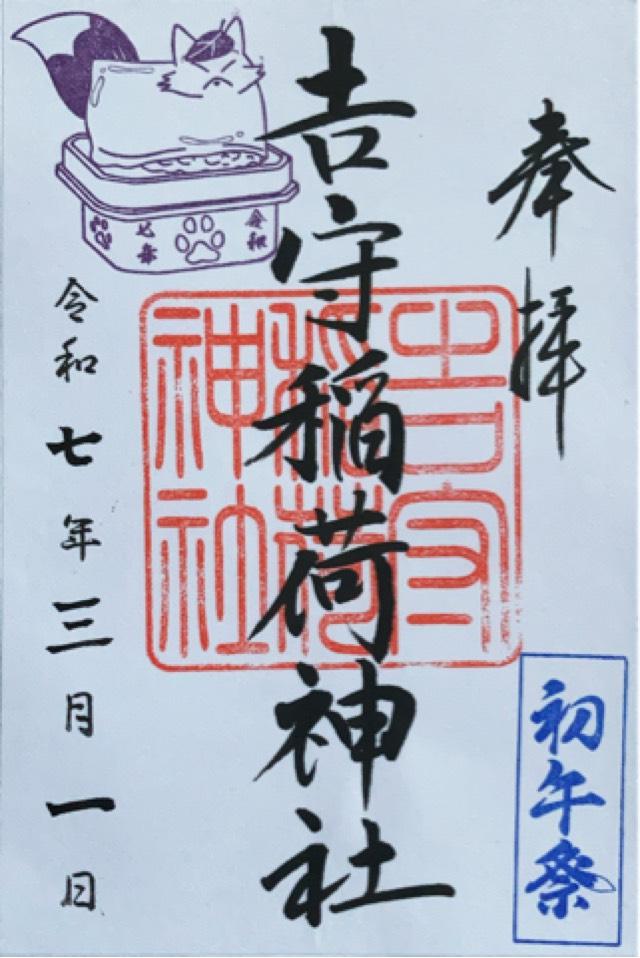 奉拝
吉守稲荷神社
吉守
稲荷
神社
初午祭
令和
七年
令和七年三月一日